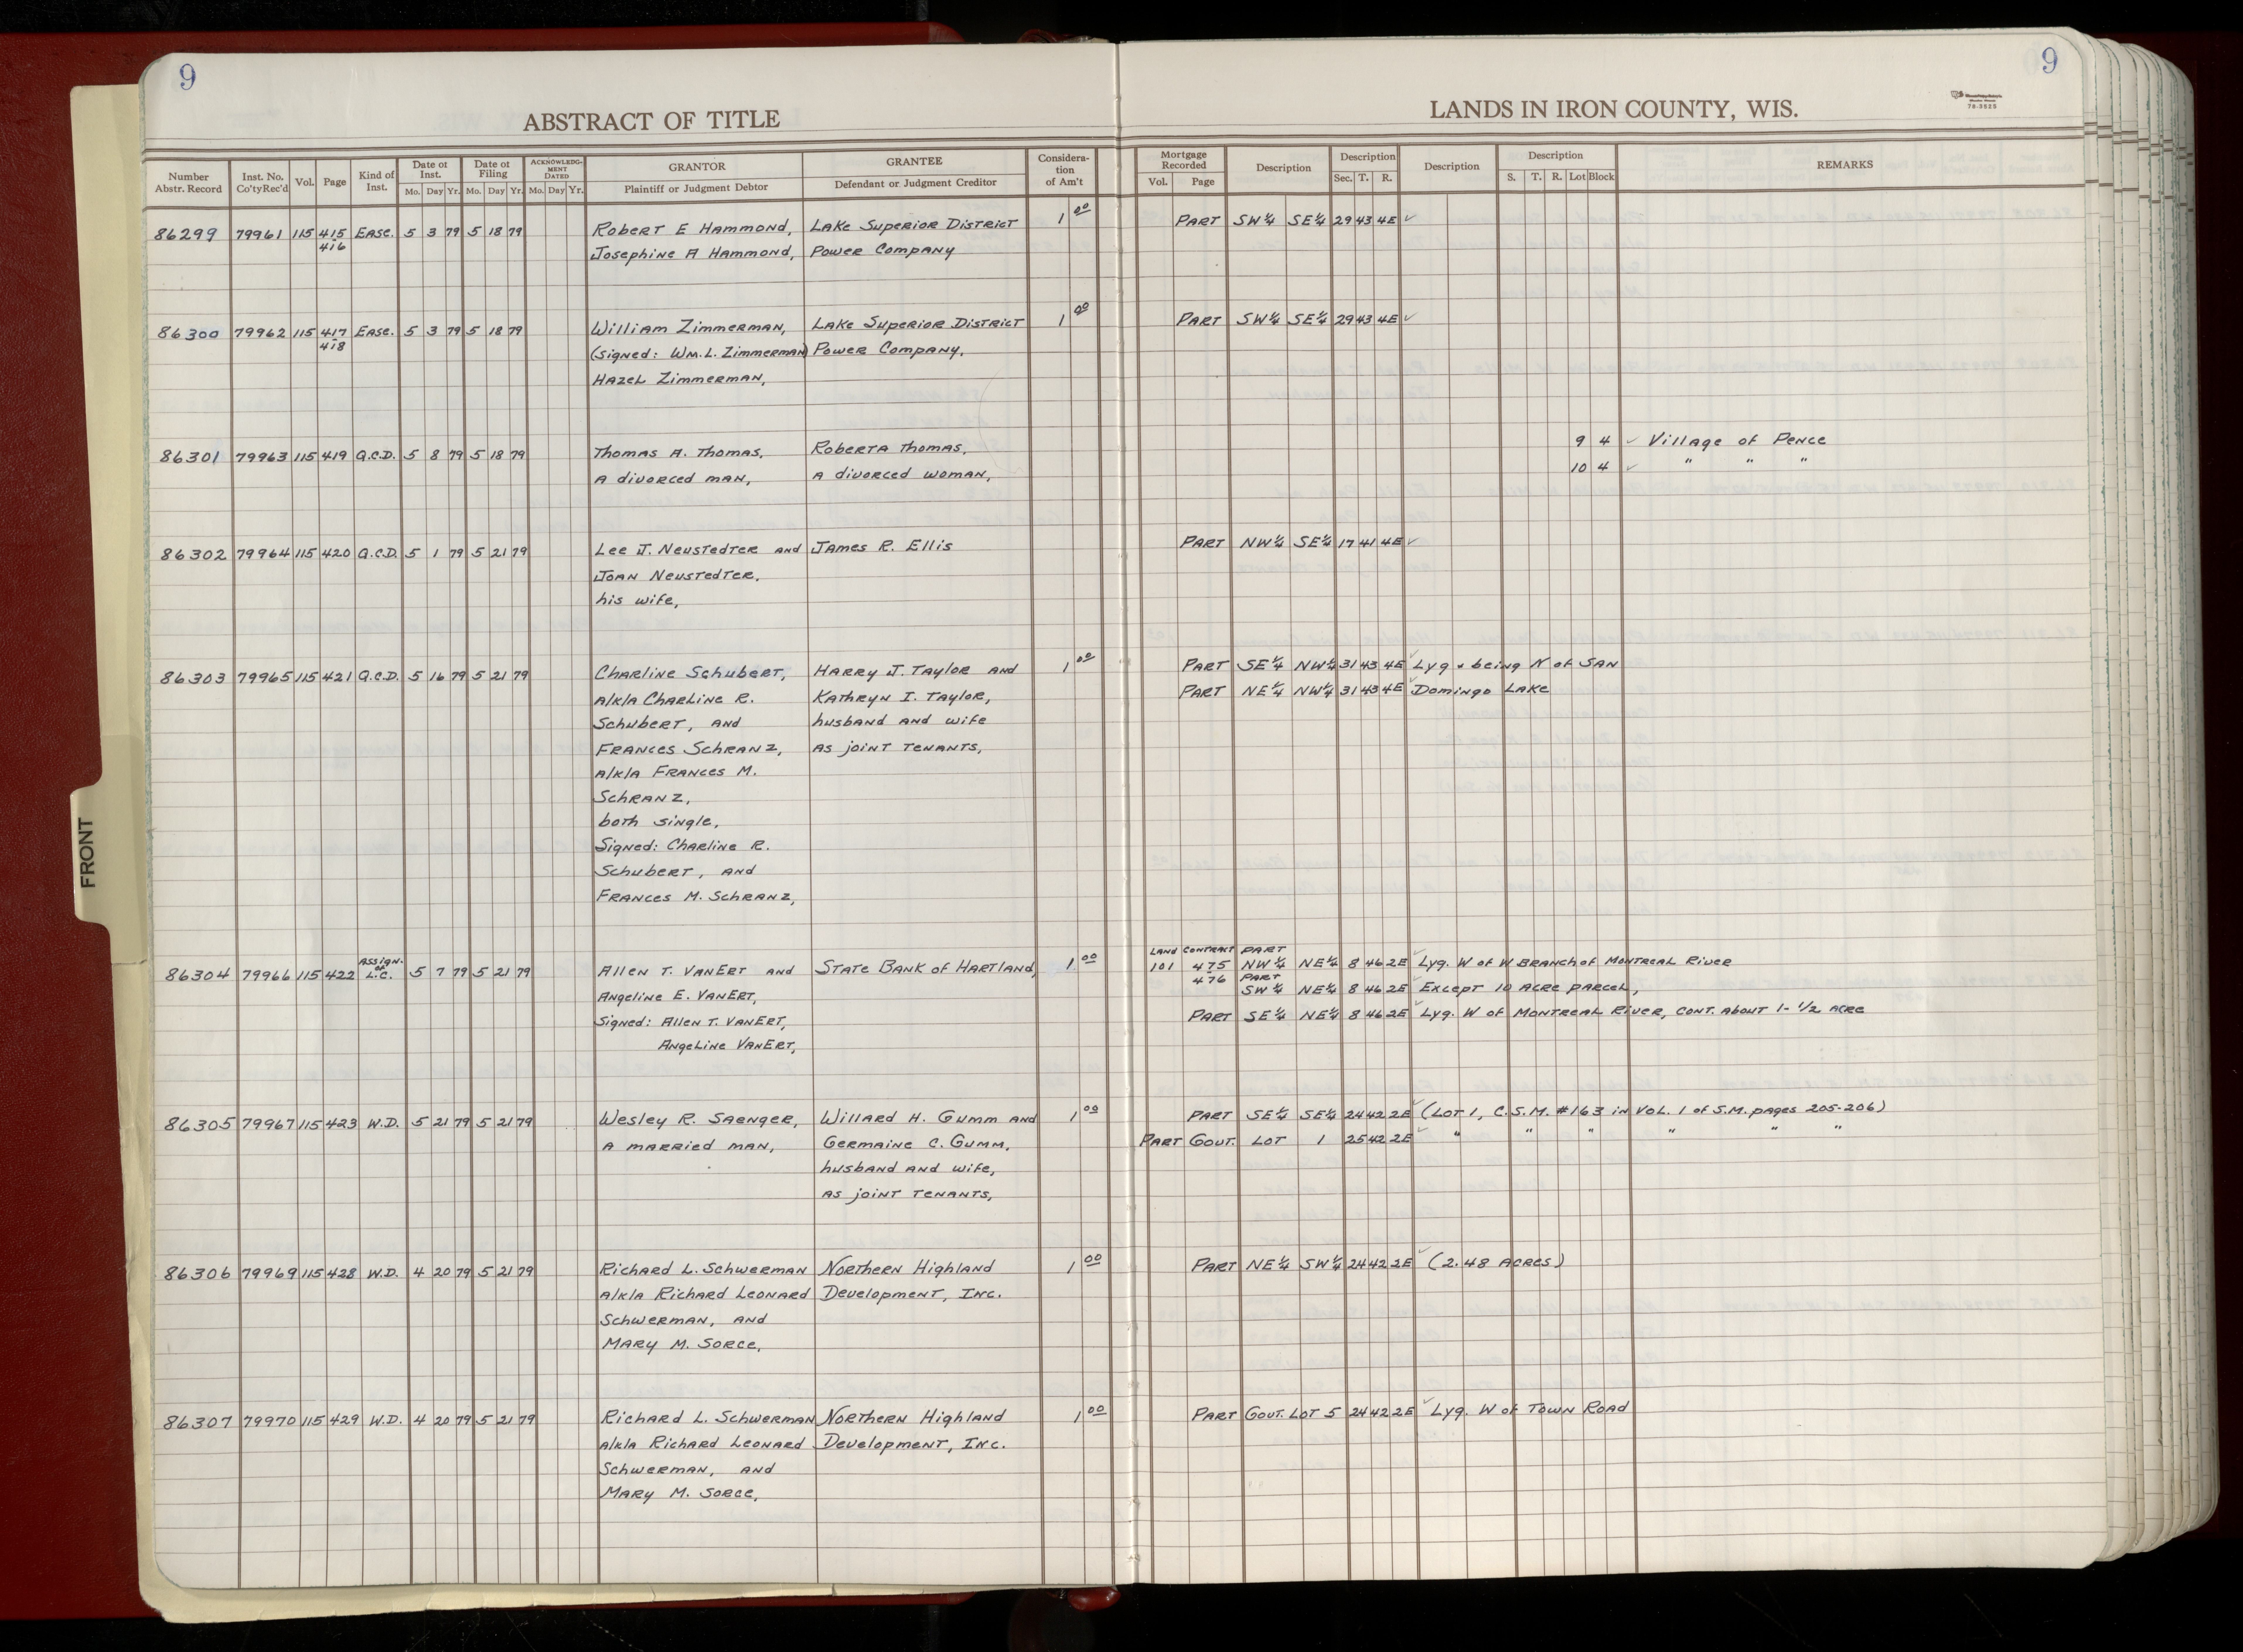 9
9
ABSTRACT OF TITLE
LANDS IN IRON COUNTY, WIS.
70-3525
Number Abstr. Record | Inst. No. Co'ty Rec'd | Vol. | Page | Kind of Inst. | Date of Inst. Mo. Day Yr. | Date of Filing Mo. Day Yr. | ACKNOWLEDGMENT DATED Mo. Day Yr. | GRANTOR Plaintiff or Judgment Debtor | GRANTEE Defendant or Judgment Creditor | Consideration of Am't | Mortgage Recorded Vol. Page | Description | Description Sec. T. R. | Description | Description S. T. R. Lot Block | REMARKS
86299 79961 115 415 EASE. 5 3 79 5 18 79 Robert E Hammond, Lake Superior District 1 00 PART SW¼ SE¼ 29 43 4E ✓
416 Josephine A Hammond, Power Company
86300 79962 115 417 EASE. 5 3 79 5 18 79 William Zimmerman, Lake Superior District 1 00 PART SW¼ SE¼ 29 43 4E ✓
418 (Signed: Wm. L. Zimmerman) Power Company,
Hazel Zimmerman,
86301 79963 115 419 Q.C.D. 5 8 79 5 18 79 Thomas A. Thomas, Roberta Thomas, 9 4 ✓ Village of Pence
A divorced man, A divorced woman, 10 4 ✓ " " "
86302 79964 115 420 Q.C.D. 5 1 79 5 21 79 Lee J. Neustedter and James R. Ellis PART NW¼ SE¼ 17 41 4E ✓
Joan Neustedter,
his wife,
86303 79965 115 421 Q.C.D. 5 16 79 5 21 79 Charline Schubert, Harry J. Taylor and 1 00 PART SE¼ NW¼ 31 43 4E ✓ Lyg & being N of San
a/k/a Charline R. Kathryn I. Taylor, PART NE¼ NW¼ 31 43 4E ✓ Domingo Lake
Schubert, and husband and wife
Frances Schranz, as joint tenants,
a/k/a Frances M.
Schranz,
both single,
Signed: Charline R.
Schubert, and
Frances M. Schranz,
86304 79966 115 422 Assign. of L.C. 5 7 79 5 21 79 Allen T. VanErt and State Bank of Hartland, 1 00 Land Contract 101 475 PART NW¼ NE¼ 8 46 2E ✓ Lyg. W of W Branch of Montreal River
Angeline E. VanErt, 476 PART SW¼ NE¼ 8 46 2E ✓ Except 10 acre parcel,
Signed: Allen T. VanErt, PART SE¼ NE¼ 8 46 2E ✓ Lyg. W of Montreal River, cont. about 1-1/2 acre
Angeline VanErt,
86305 79967 115 423 W.D. 5 21 79 5 21 79 Wesley R. Saenger, Willard H. Gumm and 1 00 PART SE¼ SE¼ 24 42 2E ✓ (Lot 1, C.S.M. #163 in Vol. 1 of S.M. pages 205-206)
A married man, Germaine C. Gumm, PART Gout. LOT 1 25 42 2E ✓ " " " " " "
husband and wife,
as joint tenants,
86306 79969 115 428 W.D. 4 20 79 5 21 79 Richard L. Schwerman Northern Highland 1 00 PART NE¼ SW¼ 24 42 2E ✓ (2.48 acres)
a/k/a Richard Leonard Development, Inc.
Schwerman, and
Mary M. Sorce,
86307 79970 115 429 W.D. 4 20 79 5 21 79 Richard L. Schwerman Northern Highland 1 00 PART Gout. LOT 5 24 42 2E ✓ Lyg. W of Town Road
a/k/a Richard Leonard Development, Inc.
Schwerman, and
Mary M. Sorce,
FRONT